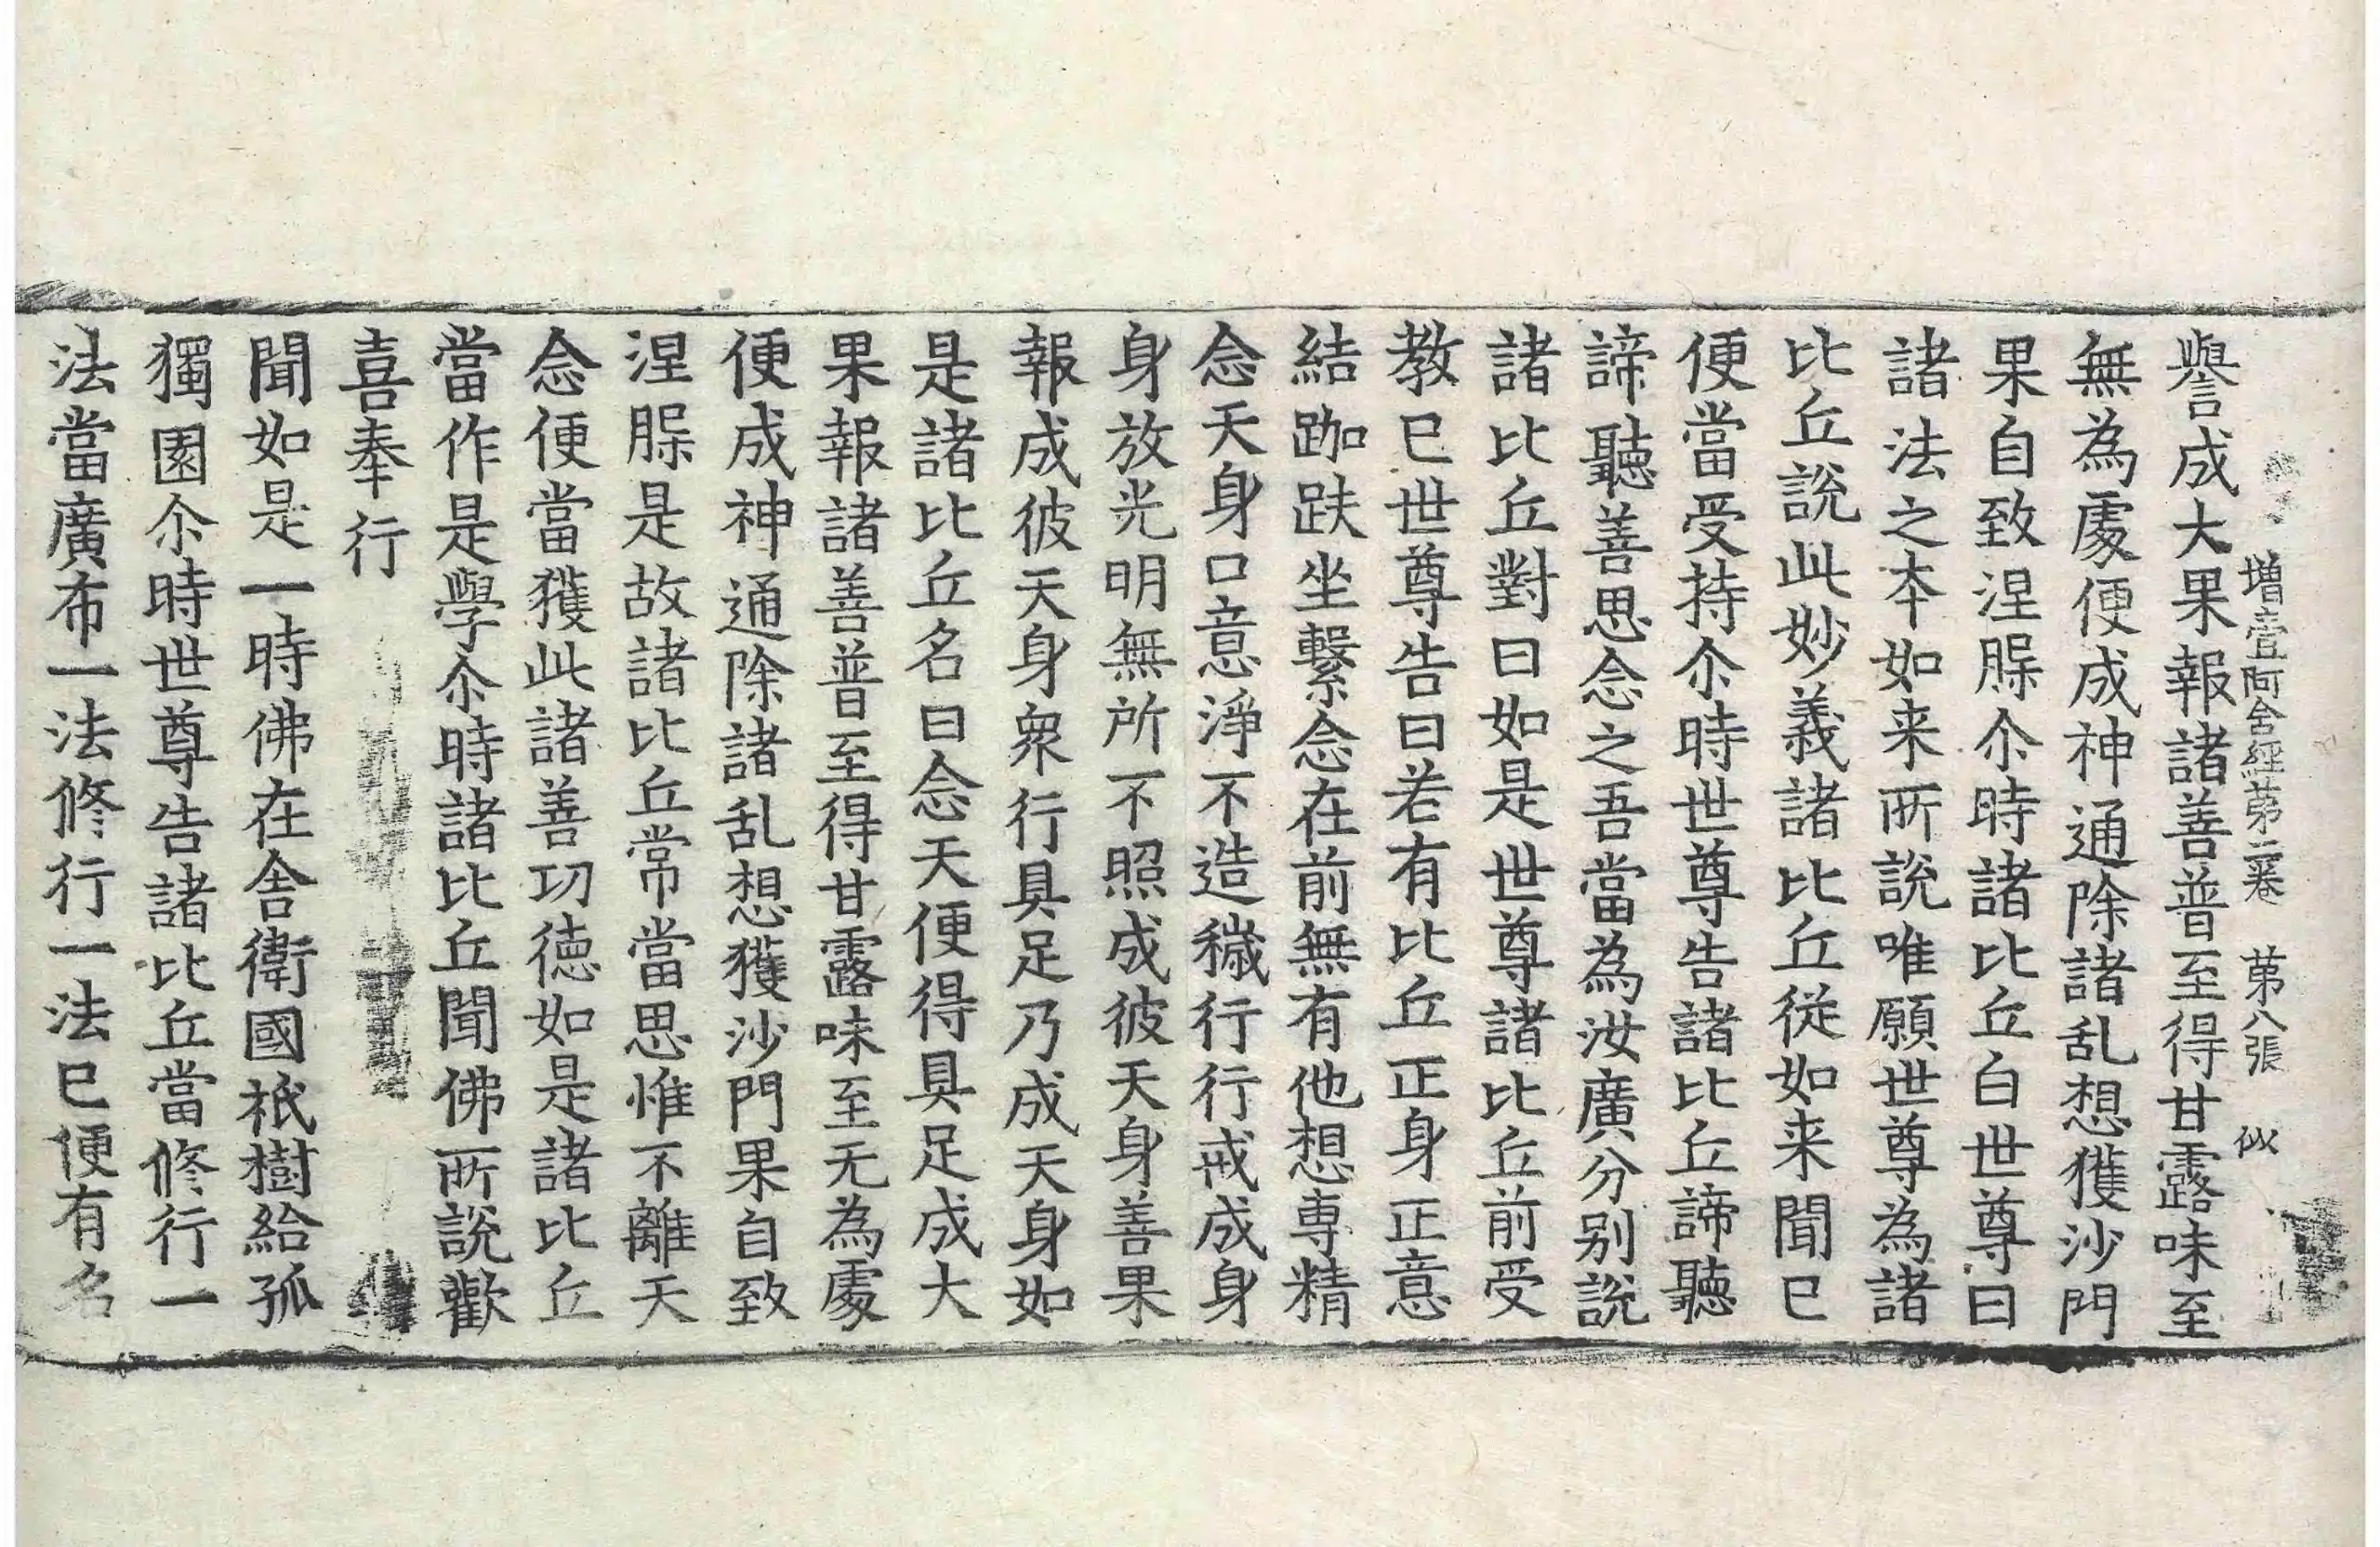 增壹阿含經第二卷 第八張 似
譽成大果報諸善普至得甘露味至
無為處便成神通除諸乱想獲沙門
果自致涅槃尒時諸比丘白世尊曰
諸法之本如来所說唯願世尊為諸
比丘說此妙義諸比丘從如来聞已
便當受持尒時世尊告諸比丘諦聽
諦聽善思念之吾當為汝廣分别說
諸比丘對曰如是世尊諸比丘前受
教已世尊告曰若有比丘正身正意
結跏趺坐繫念在前無有他想専精
念天身口意淨不造穢行行戒成身
身放光明無所不照成彼天身善果
報成彼天身衆行具足乃成天身如
是諸比丘名曰念天便得具足成大
果報諸善普至得甘露味至无為處
便成神通除諸乱想獲沙門果自致
涅槃是故諸比丘常當思惟不離天
念便當獲此諸善功徳如是諸比丘
當作是學尒時諸比丘聞佛所說歡
喜奉行
聞如是一時佛在舎衛國祇樹給孤
獨園尒時世尊告諸比丘當修行一
法當廣布一法修行一法已便有名